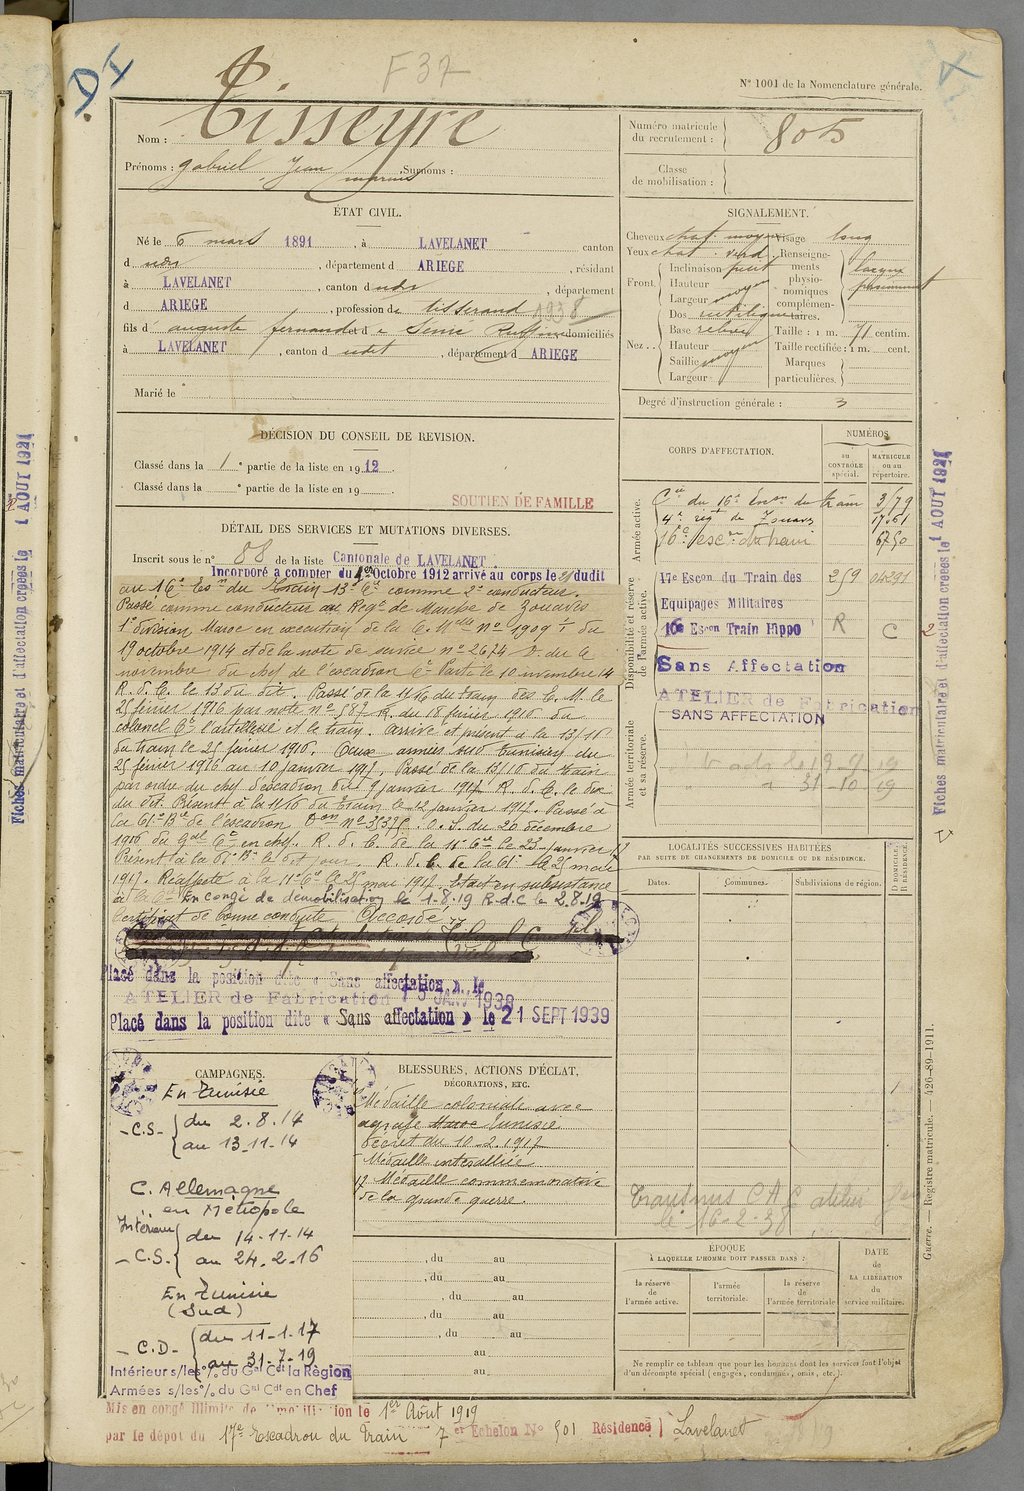 D I
F 37
Nº 1001 de la Nomenclature générale.
Nom : Tisseyre
Prénoms : gabriel Jean Surnoms :
ÉTAT CIVIL.
Né le 6 mars 1891, à LAVELANET canton
d udit, département d ARIEGE, résidant
à LAVELANET, canton d udit, département
d ARIEGE, profession de tisserand 1938
fils d' auguste fernand et d e Senie Ruffin domiciliés
à LAVELANET, canton d udit, département d ARIEGE
Marié le
DÉCISION DU CONSEIL DE REVISION.
Classé dans la 1e partie de la liste en 1912.
Classé dans la e partie de la liste en 19
SOUTIEN DE FAMILLE
DÉTAIL DES SERVICES ET MUTATIONS DIVERSES.
Inscrit sous le nº 88 de la liste Cantonale de LAVELANET
Incorporé a compter du 1er Octobre 1912 arrivé au corps le dudit
au 16e Eson du Train 13e Cie comme 2e conducteur.
Passé comme conducteur au Regt de Marche de Zouaves
1e division Maroc en execution de la C. Melle nº 1909 1/1 du
19 octobre 1914 et de la note de service nº 2674 D. du 6
novembre du chef de l'escadron Ct Parti le 10 novembre 14
R. d. C. le 13 du dit. Passé à la 11/16 du train des E. M. le
25 février 1916 par note nº 587 R. du 18 février 1916 du
colonel Ct l'artillerie et le train. arrivé et présent à la 13/16
du train le 25 février 1916. Corps armées sud tunisien du
25 février 1916 au 10 janvier 1917. Passé de la 13/16 du train
par ordre du chef d'escadron du 9 janvier 1917 R. d. C. le dix
du dit. Présent à la 11/16 du train le 12 janvier 1917. Passé à
la 61e Bie de l'escadron Don nº 35375. O. S. du 20 décembre
1916 du gal Ct en chef. R. d. C. de la 11e Cie le 23 janvier 17
Présent à la 61e Bie le dit jour. R. d. C. de la 61e le 25 mai
1917. Réaffecté à la 11e Cie le 25 mai 1917. Etait en subsistance
à la 6e En congé de démobilisation le 1-8-19 R-d-C le 2.8.19
Certificat de bonne conduite Accordé
Placé dans la position dite « Sans affectation » le
ATELIER de Fabrication 15 JANV 1938
Placé dans la position dite « Sans affectation » le 21 SEPT 1939
CAMPAGNES.
En Tunisie
- C.S - du 2.8.14
au 13-11-14
C. Allemagne
en Métropole
Intérieur du 14-11-14
- C.S. au 24.2.16
En Tunisie
(Sud)
- C.D - du 11-1-17
au 31-7-19
Intérieur s/les o/. du Gal Cdt la Région
Armées s/les o/. du Gal Cdt en Chef
BLESSURES, ACTIONS D'ÉCLAT,
DÉCORATIONS, ETC.
Médaille coloniale avec
agrafe Maroc Tunisie
decret du 10-2-1917
Médaille interalliée
Médaille commemorative
de la grande guerre.
, du au
, du au
, du au
, du au
, du au
au
au
Mis en congé illimité de démobilisation le 1er Août 1919
par le dépot du 17e Escadron du Train 7 et Echelon Nº 501 Résidence) Lavelanet
Numéro matricule
du recrutement : 805
Classe
de mobilisation :
SIGNALEMENT.
Cheveux chat. moyen Visage long
Yeux chat. verd Renseignements physionomiques complémentaires.
Front. Inclinaison petit
Hauteur moyen
Largeur
Dos rectiligne
Nez .. Base relevé Taille : 1 m. 71 centim.
Hauteur moyen Taille rectifiée : 1 m. cent.
Saillie Marques
Largeur particulières.
Degré d'instruction générale : 3
CORPS D'AFFECTATION.
NUMÉROS
au CONTRÔLE spécial.
MATRICULE ou au répertoire.
Armée active.
Cie du 16e Eson du train 3179
4e régt de Zouaves 17.161
16e escon du train 6750
Disponibilité et réserve de l'armée active.
17e Escon du Train des 259
Equipages Militaires
16e Escon Train Hippo R C
Sans Affectation
ATELIER de Fabrication
SANS AFFECTATION
Armée territoriale et sa réserve.
31-10-19
LOCALITÉS SUCCESSIVES HABITÉES
PAR SUITE DE CHANGEMENTS DE DOMICILE OU DE RÉSIDENCE.
Dates. Communes. Subdivisions de région. D DOMICILE, R RÉSIDENCE.
Transmis C A C atelier
le 16-2-38
ÉPOQUE
À LAQUELLE L'HOMME DOIT PASSER DANS :
la réserve de l'armée active.
l'armée territoriale.
la réserve de l'armée territoriale
DATE
de
LA LIBÉRATION
du
service militaire.
Ne remplir ce tableau que pour les hommes dont les services font l'objet
d'un décompte spécial (engagés, condamnés, omis, etc.).
Guerre. — Registre matricule. — 426-89-1911.
Fiches matriculaire et d'affectation creées le 1 AOUT 1921
Fiches matriculaire et d'affectation creées le 1 AOUT 1921